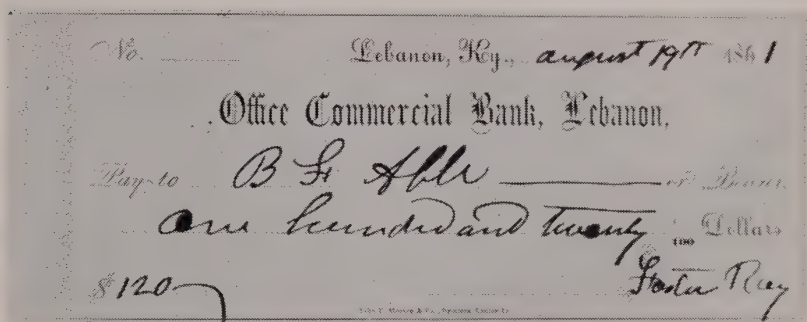 No. Lebanon, Ky., august 19th 1861
Office Commercial Bank, Lebanon.
Pay to B F Able or Bearer
one hundred and twenty /100 Dollars
$120 Foster Ray